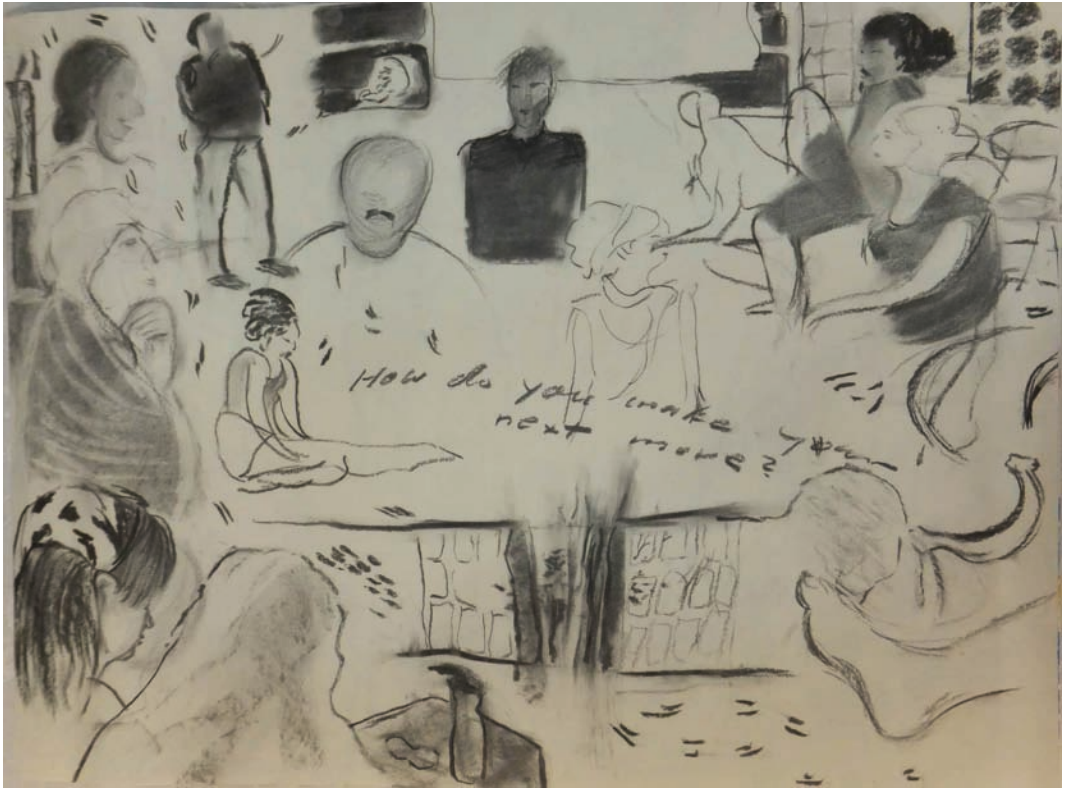 How do you make your
next move?